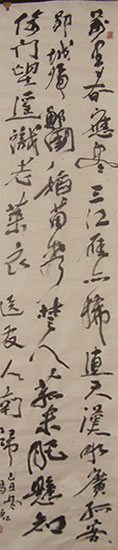 萬里春應盡三江雁亦稀連天漢水廣孤客
郢城歸鄖國稻苗秀楚人菰米肥懸知
倚門望遙識老萊衣 送友人南歸